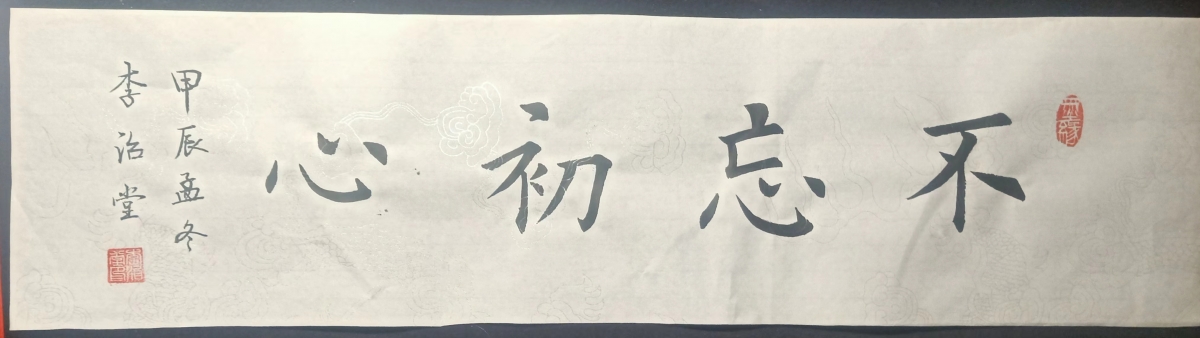 不忘初心
甲辰孟冬
李治堂